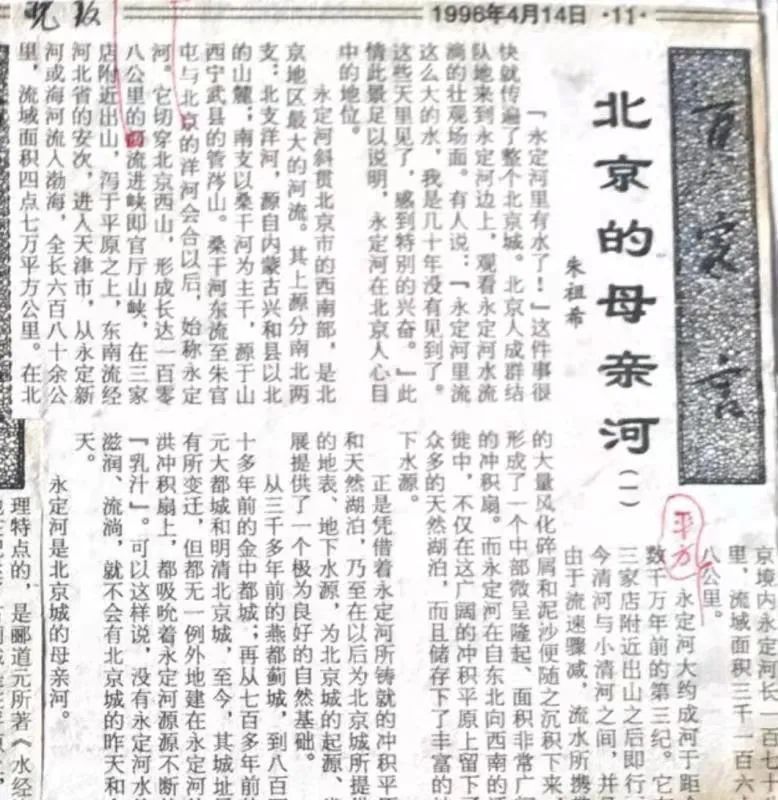 晚报
1996年4月14日 ·11·
百家言
北京的母亲河（一）
朱祖希
「永定河里有水了！」这件事很
快就传遍了整个北京城。北京人成群结
队地来到永定河边上，观看永定河水流
淌的壮观场面。有人说：「永定河里流
这么大的水，我是几十年没有见到了。
这些天里见了，感到特别的兴奋。」此
情此景足以说明，永定河在北京人心目
中的地位。
永定河斜贯北京市的西南部，是北
京地区最大的河流。其上源分南北两
支：北支洋河，源自内蒙古兴和县以北
的山麓；南支以桑干河为主干，源于山
西宁武县的管涔山。桑干河东流至朱官
屯与北京的洋河会合以后，始称永定
河。它切穿北京西山，形成长达一百零
八公里的流进峡即官厅山峡，在三家
店附近出山，泻于平原之上，东南流经
河北省的安次，进入天津市，从永定新
河或海河流入渤海，全长六百八十余公
里，流域面积四点七万平方公里。在北
京境内永定河长一百七十
里，流域面积三千一百六
平方
八公里。
永定河大约成河于距
数千万年前的第三纪。它
三家店附近出山之后即行
今清河与小清河之间，并
由于流速骤减，流水所携
的大量风化碎屑和泥沙便随之沉积下来
形成了一个中部微呈隆起、面积非常广
的冲积扇。而永定河在自东北向西南的
徙中，不仅在这广阔的冲积平原上留下
众多的天然湖泊，而且储存下了丰富的
下水源。
正是凭借着永定河所铸就的冲积平
和天然湖泊，乃至在以后为北京城所提
的地表、地下水源，为北京城的起源、
展提供了一个极为良好的自然基础。
从三千多年前的燕都蓟城，到八百
十多年前的金中都城；再从七百多年前
元大都城和明清北京城，至今，其城址
有所变迁，但都无一例外地建在永定河
洪冲积扇上，都吸吮着永定河源源不断
「乳汁」。可以这样说，没有永定河水
滋润、流淌，就不会有北京城的昨天和
天。
永定河是北京城的母亲河。
理特点的，是郦道元所著《水经